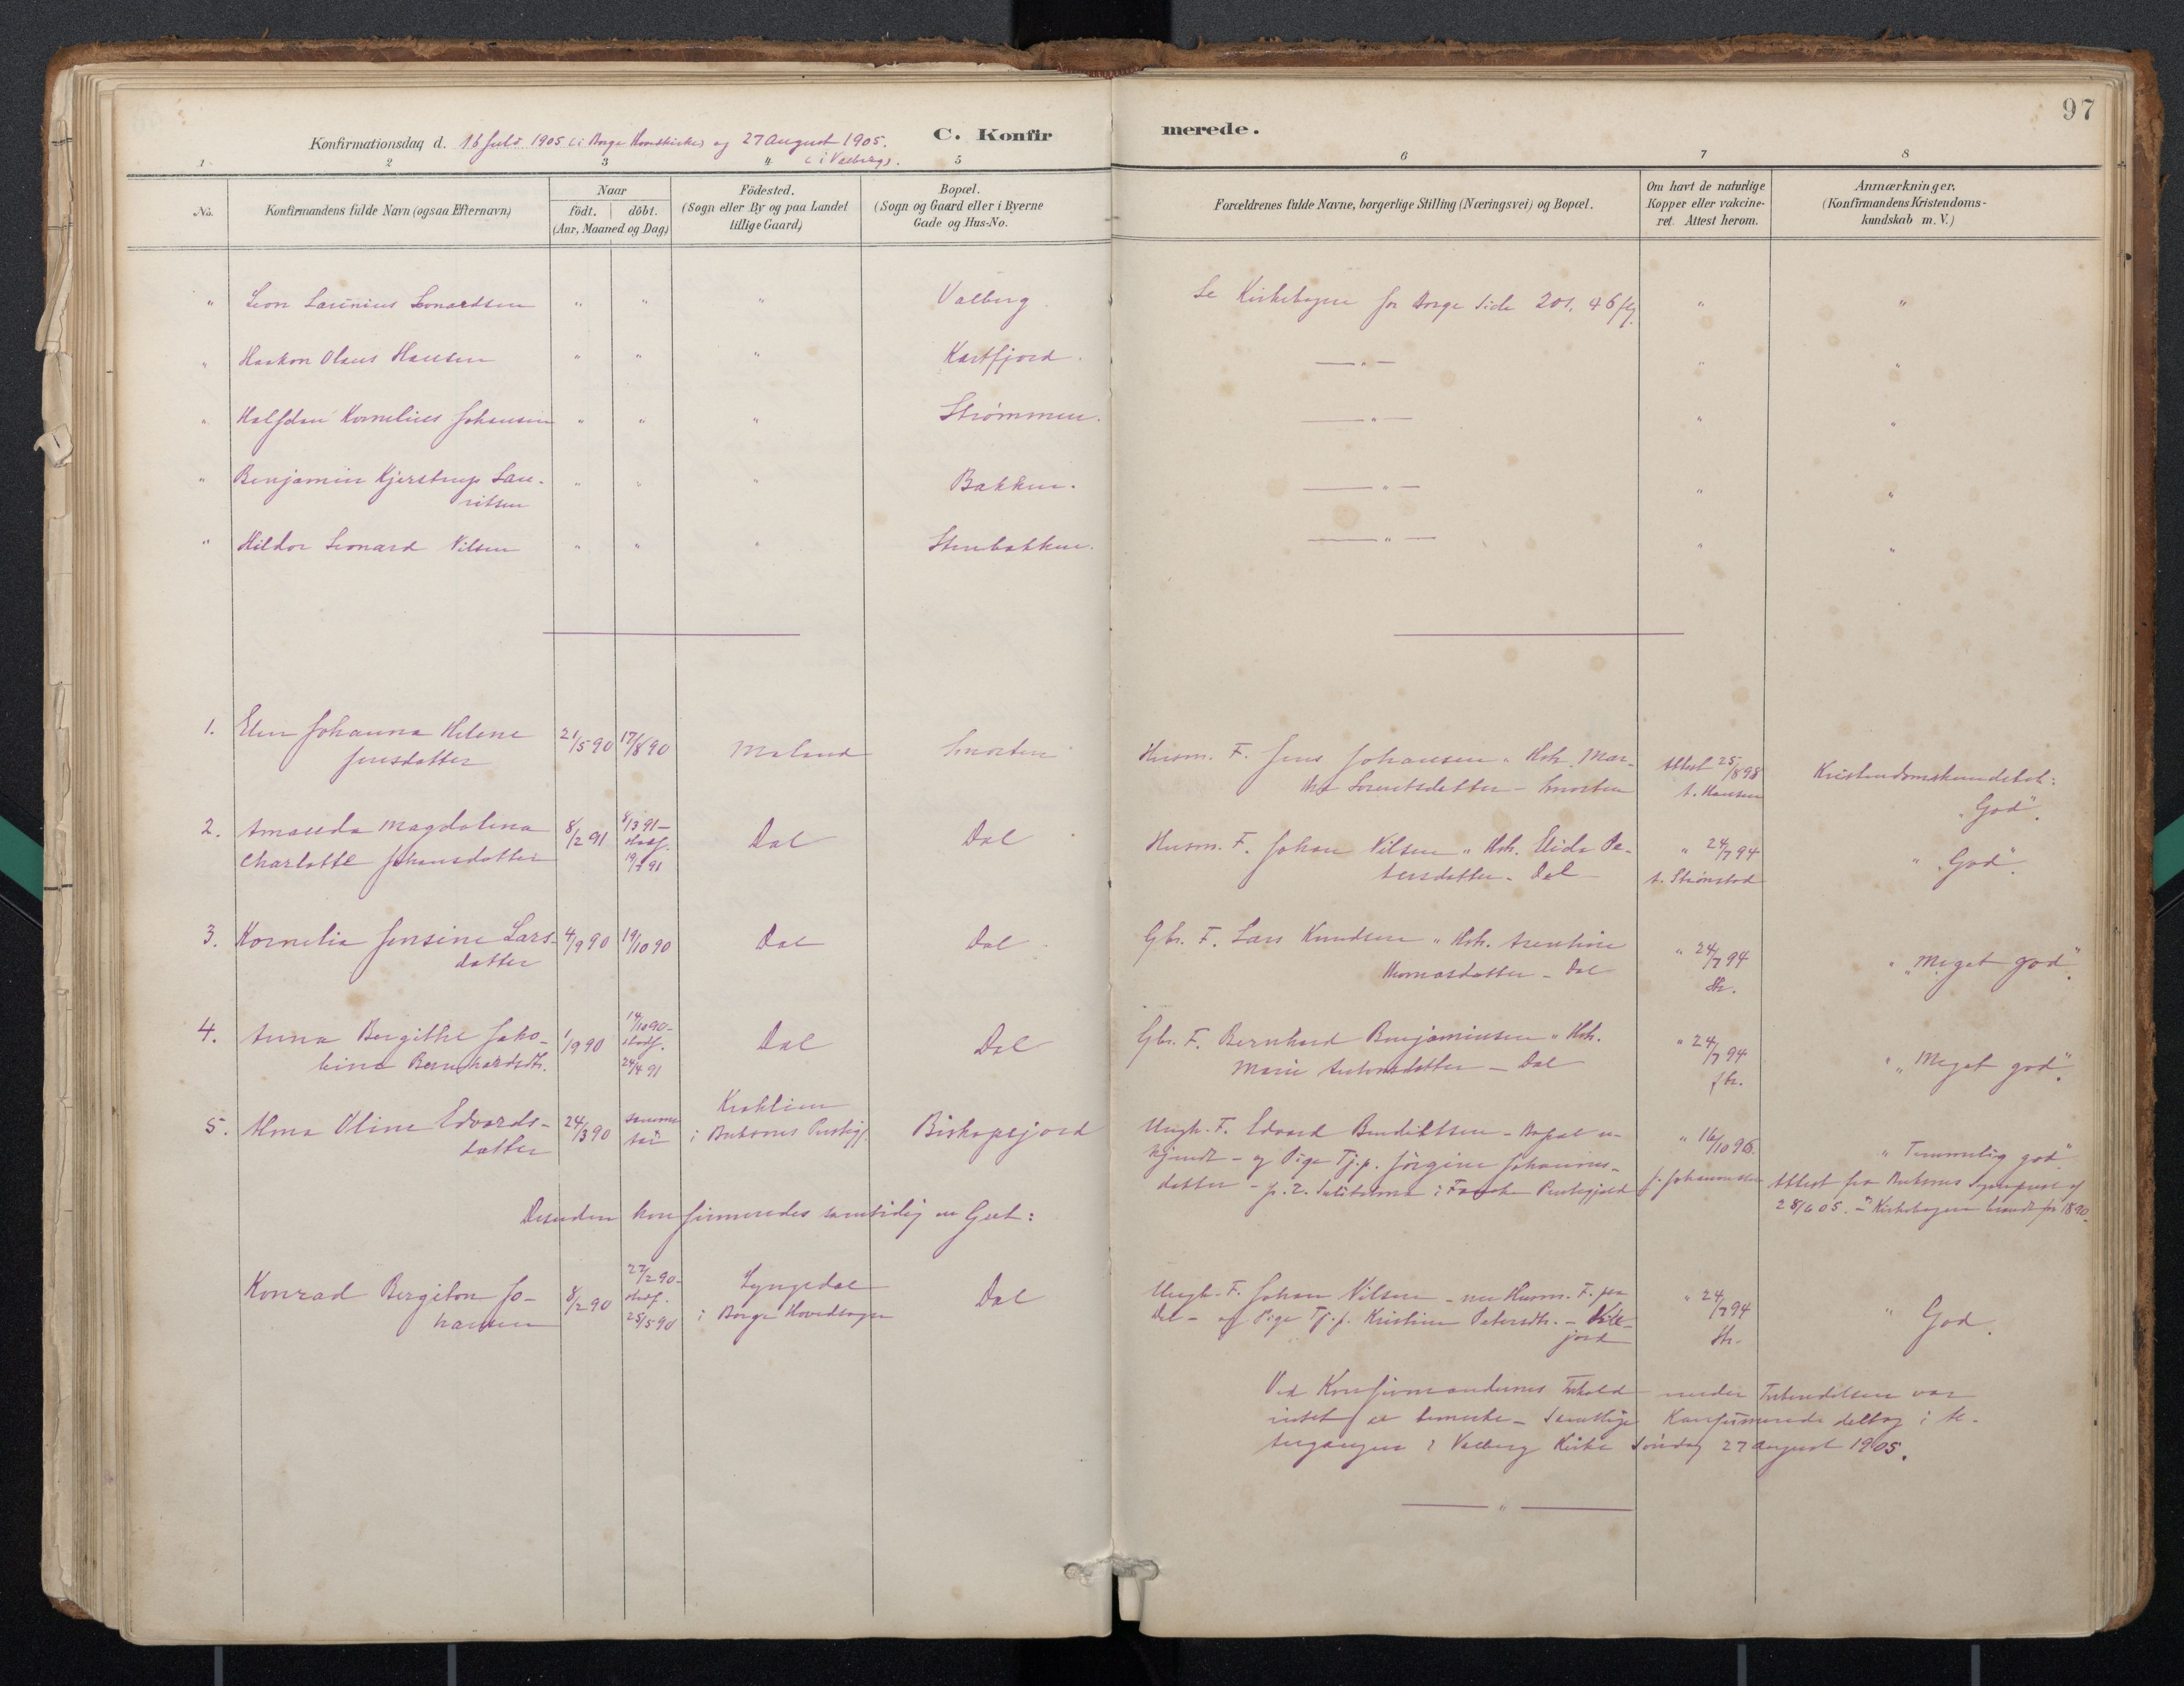 97
C. Konfirmerede.
Konfirmationsdag d. 16 Juli 1905 (i Borge Hovedkirke) og 27 August 1905.
(i Valberg).
1 2 3 4 5 6 7 8
No.
Konfirmandens fulde Navn (ogsaa Efternavn)
Naar
födt. döbt.
(Aar, Maaned og Dag)
Födested.
(Sogn eller By og paa Landet
tillige Gaard)
Bopæl.
(Sogn og Gaard eller i Byerne
Gade og Hus-No.
Forældrenes fulde Navne, borgerlige Stilling (Næringsvei) og Bopæl.
Om havt de naturlige
Kopper eller vakcine-
ret. Attest herom.
Anmærkninger.
(Konfirmandens Kristendoms-
kundskab m. V.)
" Leon Larinius Leonardsen " " " Valberg Se Kirkebogen for Borge Side 201, 46 flg. " "
" Haakon Olaus Hansen " " " Kartfjord. — " — " "
" Halfdan Kornelius Johansen " " " Strømmen. — " — " "
" Benjamin Kjerstrup Lau-
ritsen " " " Bakken. — " — " "
" Hildor Leonard Nilsen " " " Stenbakken. — " — " "
1. Elen Johanna Helene
Jensdatter 21/5 90 17/8 90 Malund Smorten
Husm. F. Jens Johansen " Hstr. Mar-
tha Lorentsdatter - Smorten
Attest 25/8 98
A. Hansen
Kristendomskundskab:
"God".
2. Amanda Magdalena
Charlotte Johansdatter 8/2 91 8/3 91 -
Stadf.
19/7 91
Dal Dal
Husm. F. Johan Nilsen " Hstr. Elida Pe-
tersdatter - Dal
" 24/7 94
A. Strømstad
" "God".
3. Kornelia Jensine Lars-
datter 4/9 90 19/10 90 Dal Dal
Gbr. F. Lars Knudsen " Hstr. Arentine
Thomasdatter - Dal
" 24/7 94
Str.
" "Meget god".
4. Anna Bergithe Jako-
bine Bernhardsdtr. 1/9 90 14/10 90 -
Stadf.
24/4 91
Dal Dal
Gbr. F. Bernhard Benjaminsen " Hstr.
Marie Antonsdatter - Dal
" 24/7 94
Str.
" "Meget god".
5. Alma Oline Edvards-
datter 24/3 90 samme
Aar
i Buksnes Prestegj. Bispejord
Ungk. F. Edvard Bendiktsen - Bopæl u-
kjendt - og Pige Tj.p. Jörgine Johannes-
datter - p. t. i Prestegjeld
" 16/10 96.
J. Johannessen
" "Temmelig god".
Attest fra Buksnes Sogneprest af
28/6 05. - Kirkebogen brændt for 1890.
Desuden konfirmeredes samtidig en Gut:
Konrad Bergiton Jo-
hansen 8/2 90 27/2 90 -
stadf.
25/5 90
Lyngedal
i Borge Hovedsogn
Dal
Ungk. F. Johan Nilsen - nu Husm. F. paa
Dal - og Pige Tj.p. Kristine Petersdtr. - Lille-
jord
" 24/7 94
Str.
" God.
Ved Konfirmandernes Forhold under Forberedelsen var
intet at bemerke - Samtlige Konfirmerede deltog i Al-
tergangen i Valberg Kirke Søndag 27 August 1905.
— " —